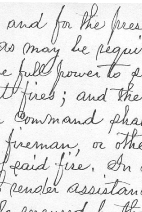 and for the pres
as may be requi
e full power to s
ll fires; and the
command sha
fireman, or othe
f said fire. In
render assistan
be required by th